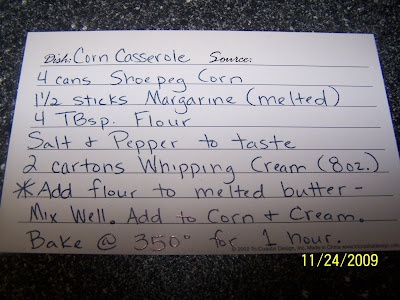 Dish: Corn Casserole Source:
4 cans Shoepeg Corn
1½ sticks Margarine (melted)
4 TBsp. Flour
Salt & Pepper to taste
2 cartons Whipping Cream (8oz.)
*Add flour to melted butter -
Mix Well. Add to Corn & Cream.
Bake @ 350° for 1 hour.
11/24/2009